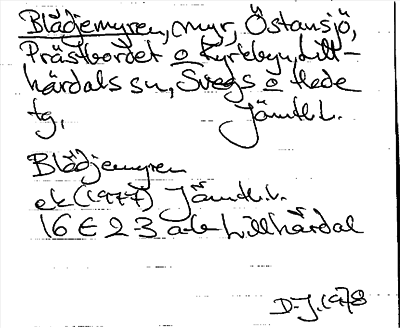 Blädjemyren, myr, Östansjö,
Prästbordet o Kyrkbyn, Lill-
härdals sn, Svegs o Hede
tg, Jämtl.L.
Blädjemyren
ek (1977) Jämtl.L.
16 E 2-3 a-b Lillhärdal
D-J. 1978